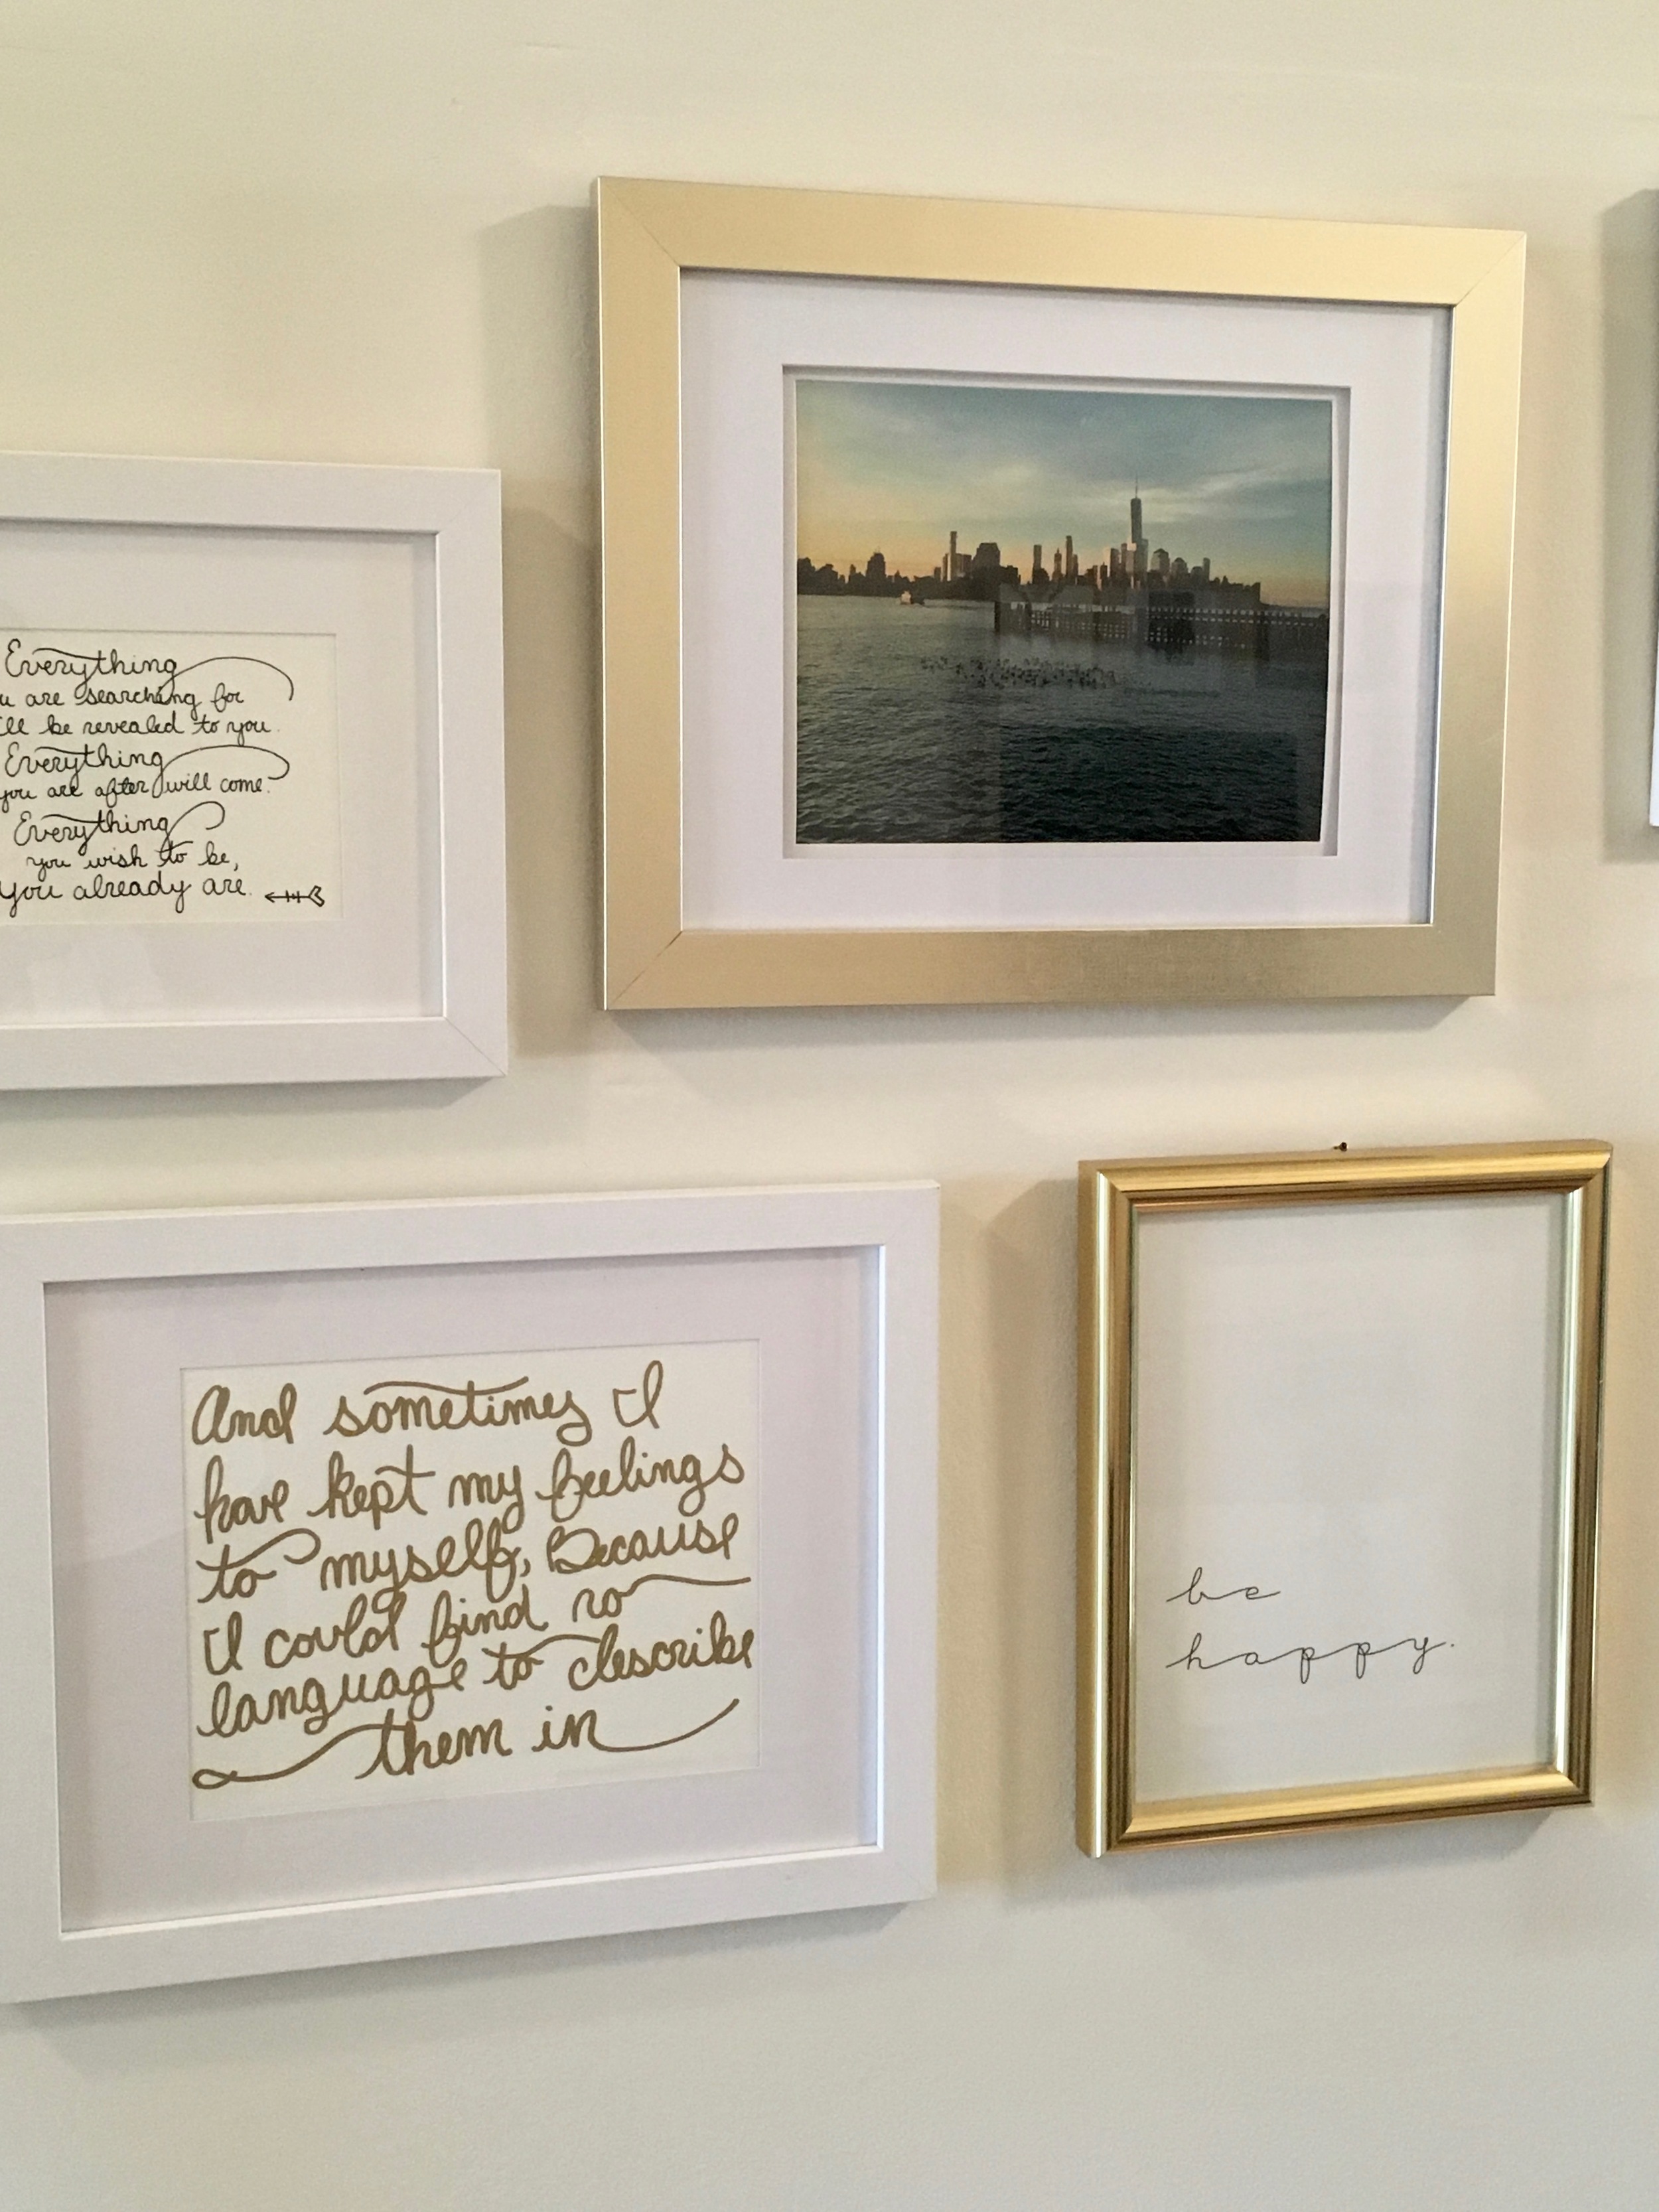 Everything
u are searching for
ill be revealed to you.
Everything
you are after will come.
Everything
you wish to be,
you already are.
And sometimes I
have kept my feelings
to myself, Because
I could find no
language to describe
them in
be
happy.